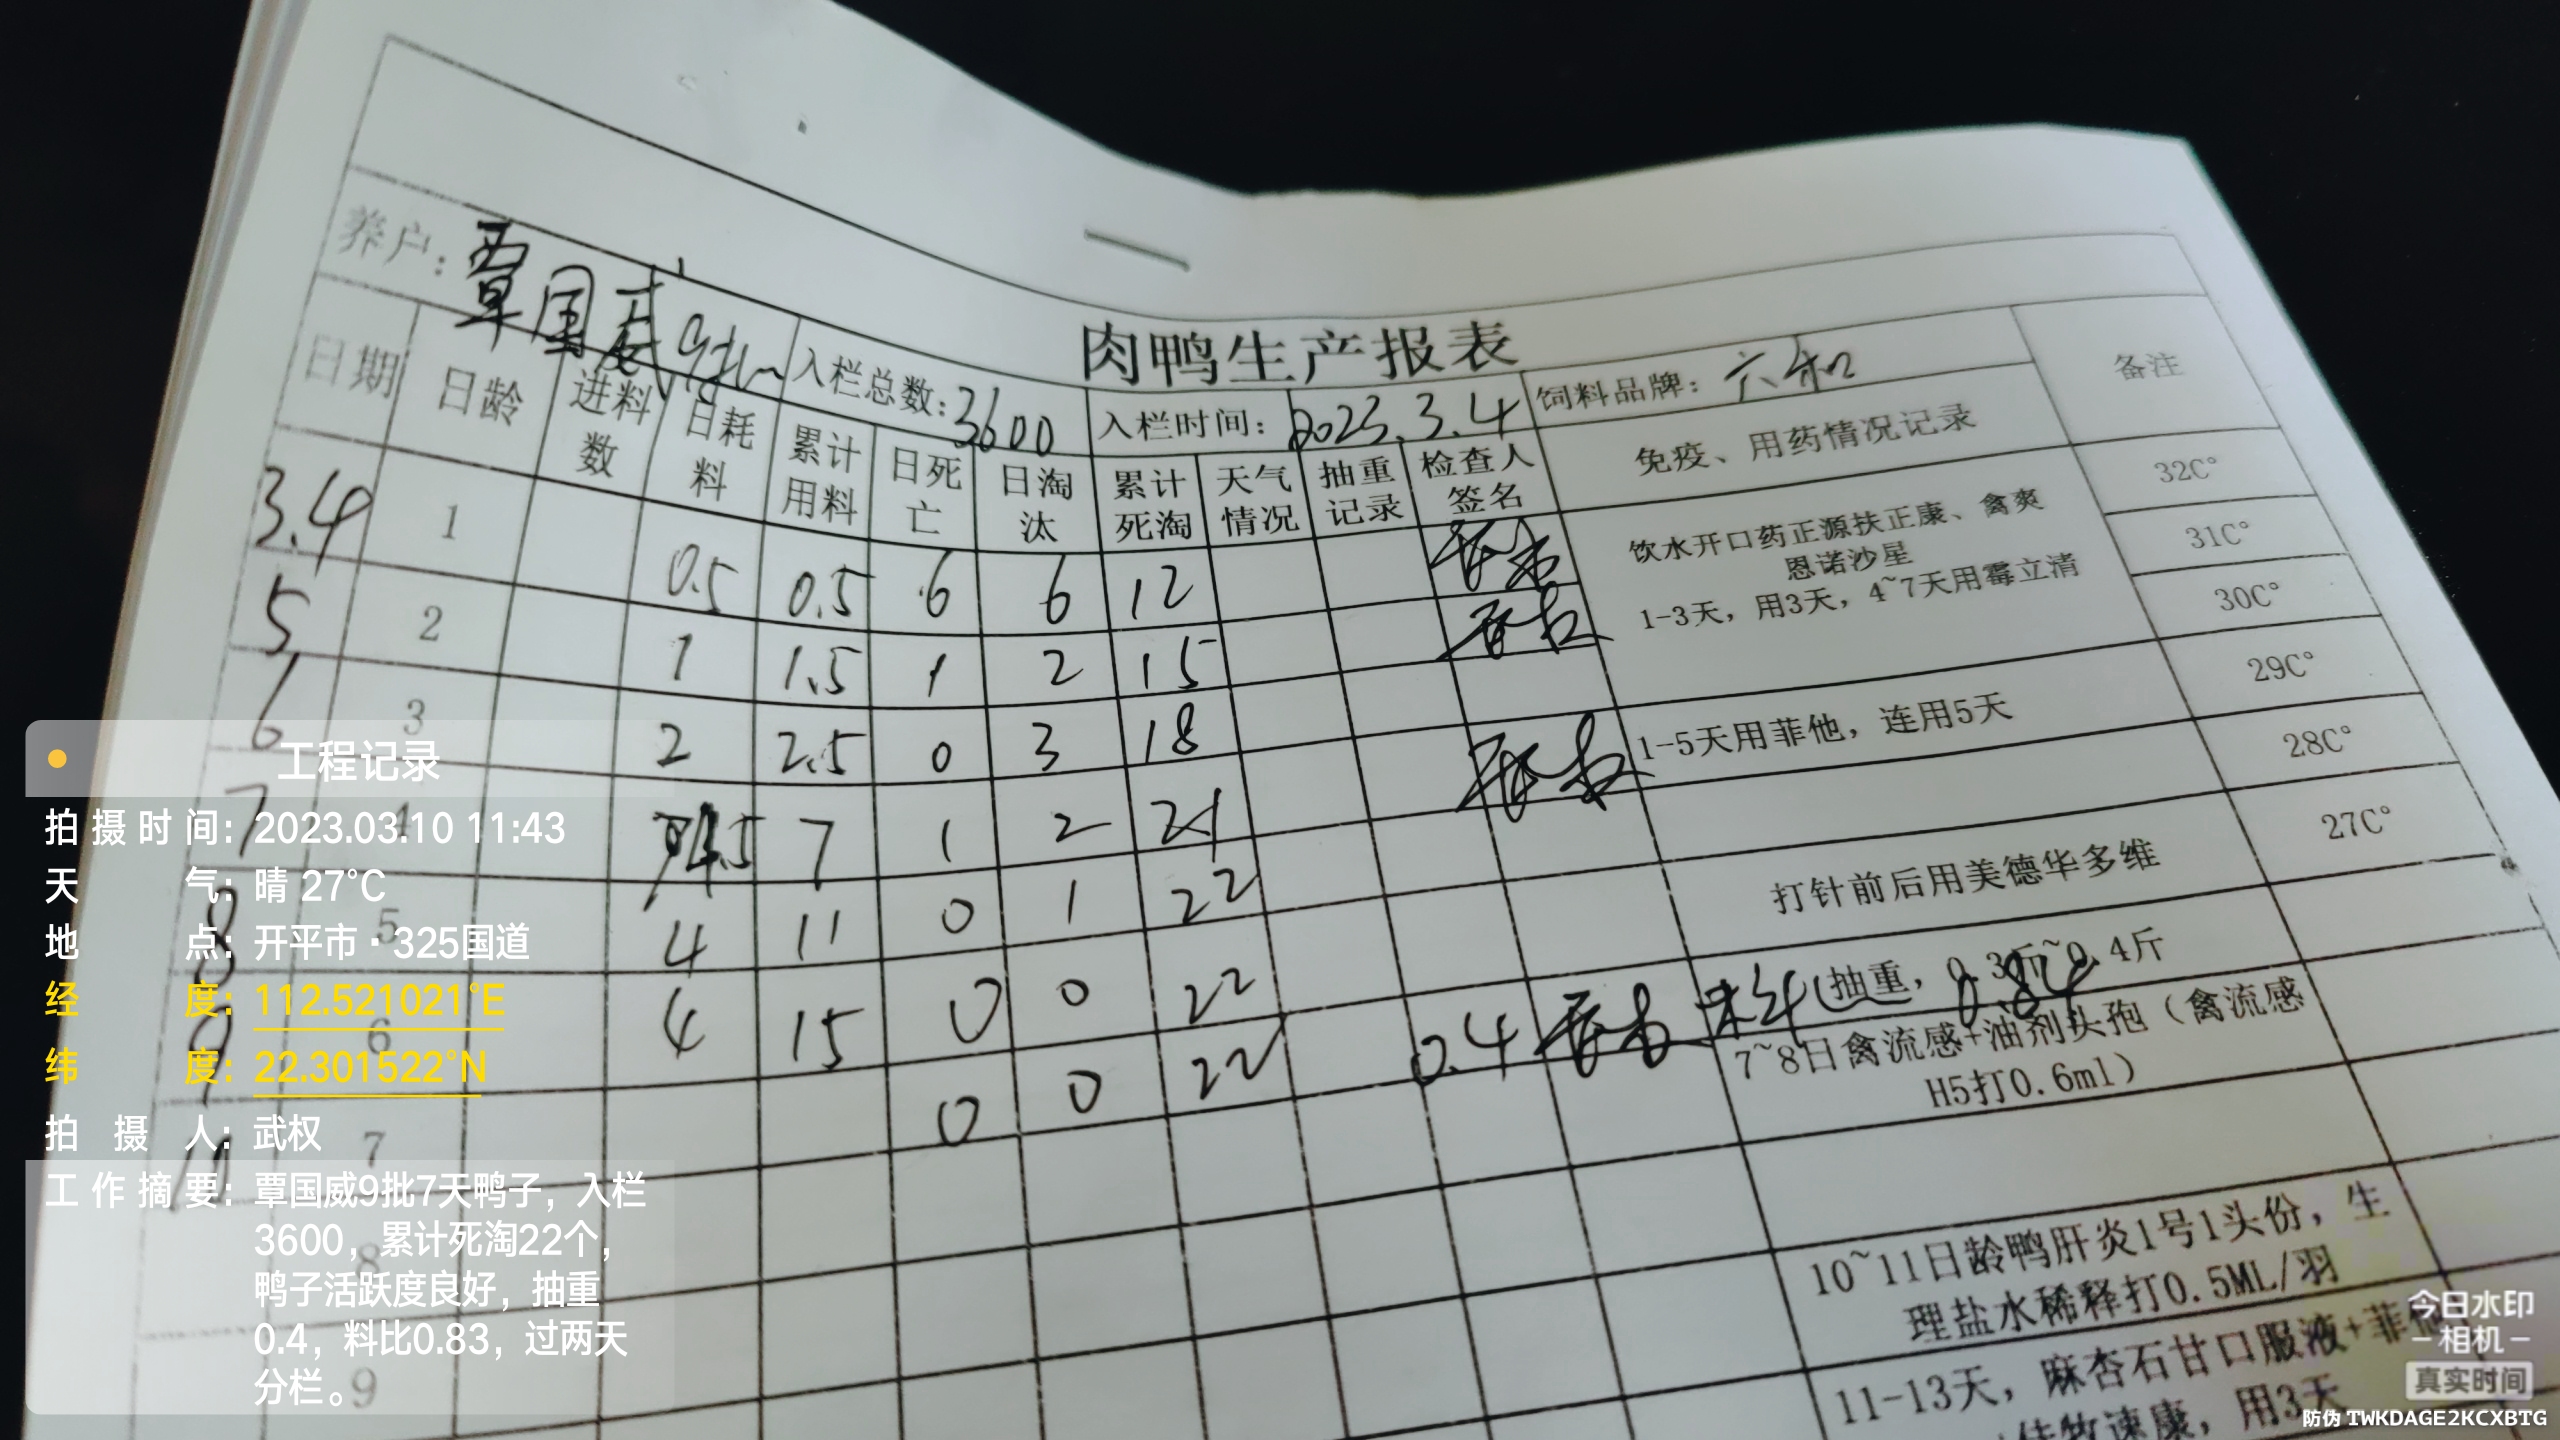 肉鸭生产报表
养户：覃国威 9批 入栏总数：3600 入栏时间：2023.3.4 饲料品牌：六和 备注
日期 日龄 进料数 日耗料 累计用料 日死亡 日淘汰 累计死淘 天气情况 抽重记录 检查人签名 免疫、用药情况记录
3.4 1 0.5 0.5 6 6 12 32C°
5 2 1 1.5 1 2 15 31C°
6 3 2 2.5 0 3 18 30C°
7 4 4.5 7 1 2 21 29C°
8 5 4 11 0 1 22 28C°
9 6 4 15 0 0 22 27C°
7 0 0 22 0.4 料比 0.84
8
9
饮水开口药正源扶正康、禽爽
恩诺沙星
1-3天，用3天，4~7天用霉立清
1-5天用菲他，连用5天
打针前后用美德华多维
抽重，0.3斤~0.4斤
7~8日禽流感+油剂头孢（禽流感
H5打0.6ml）
10~11日龄鸭肝炎1号1头份，生
理盐水稀释打0.5ML/羽
11-13天，麻杏石甘口服液+菲他
速康，用3天
工程记录
拍摄时间：2023.03.10 11:43
天气：晴 27°C
地点：开平市·325国道
经度：112.521021°E
纬度：22.301522°N
拍摄人：武权
工作摘要：覃国威9批7天鸭子，入栏
3600，累计死淘22个，
鸭子活跃度良好，抽重
0.4，料比0.83，过两天
分栏。
今日水印
-相机-
真实时间
防伪 TWKDAGE2KCXBTG